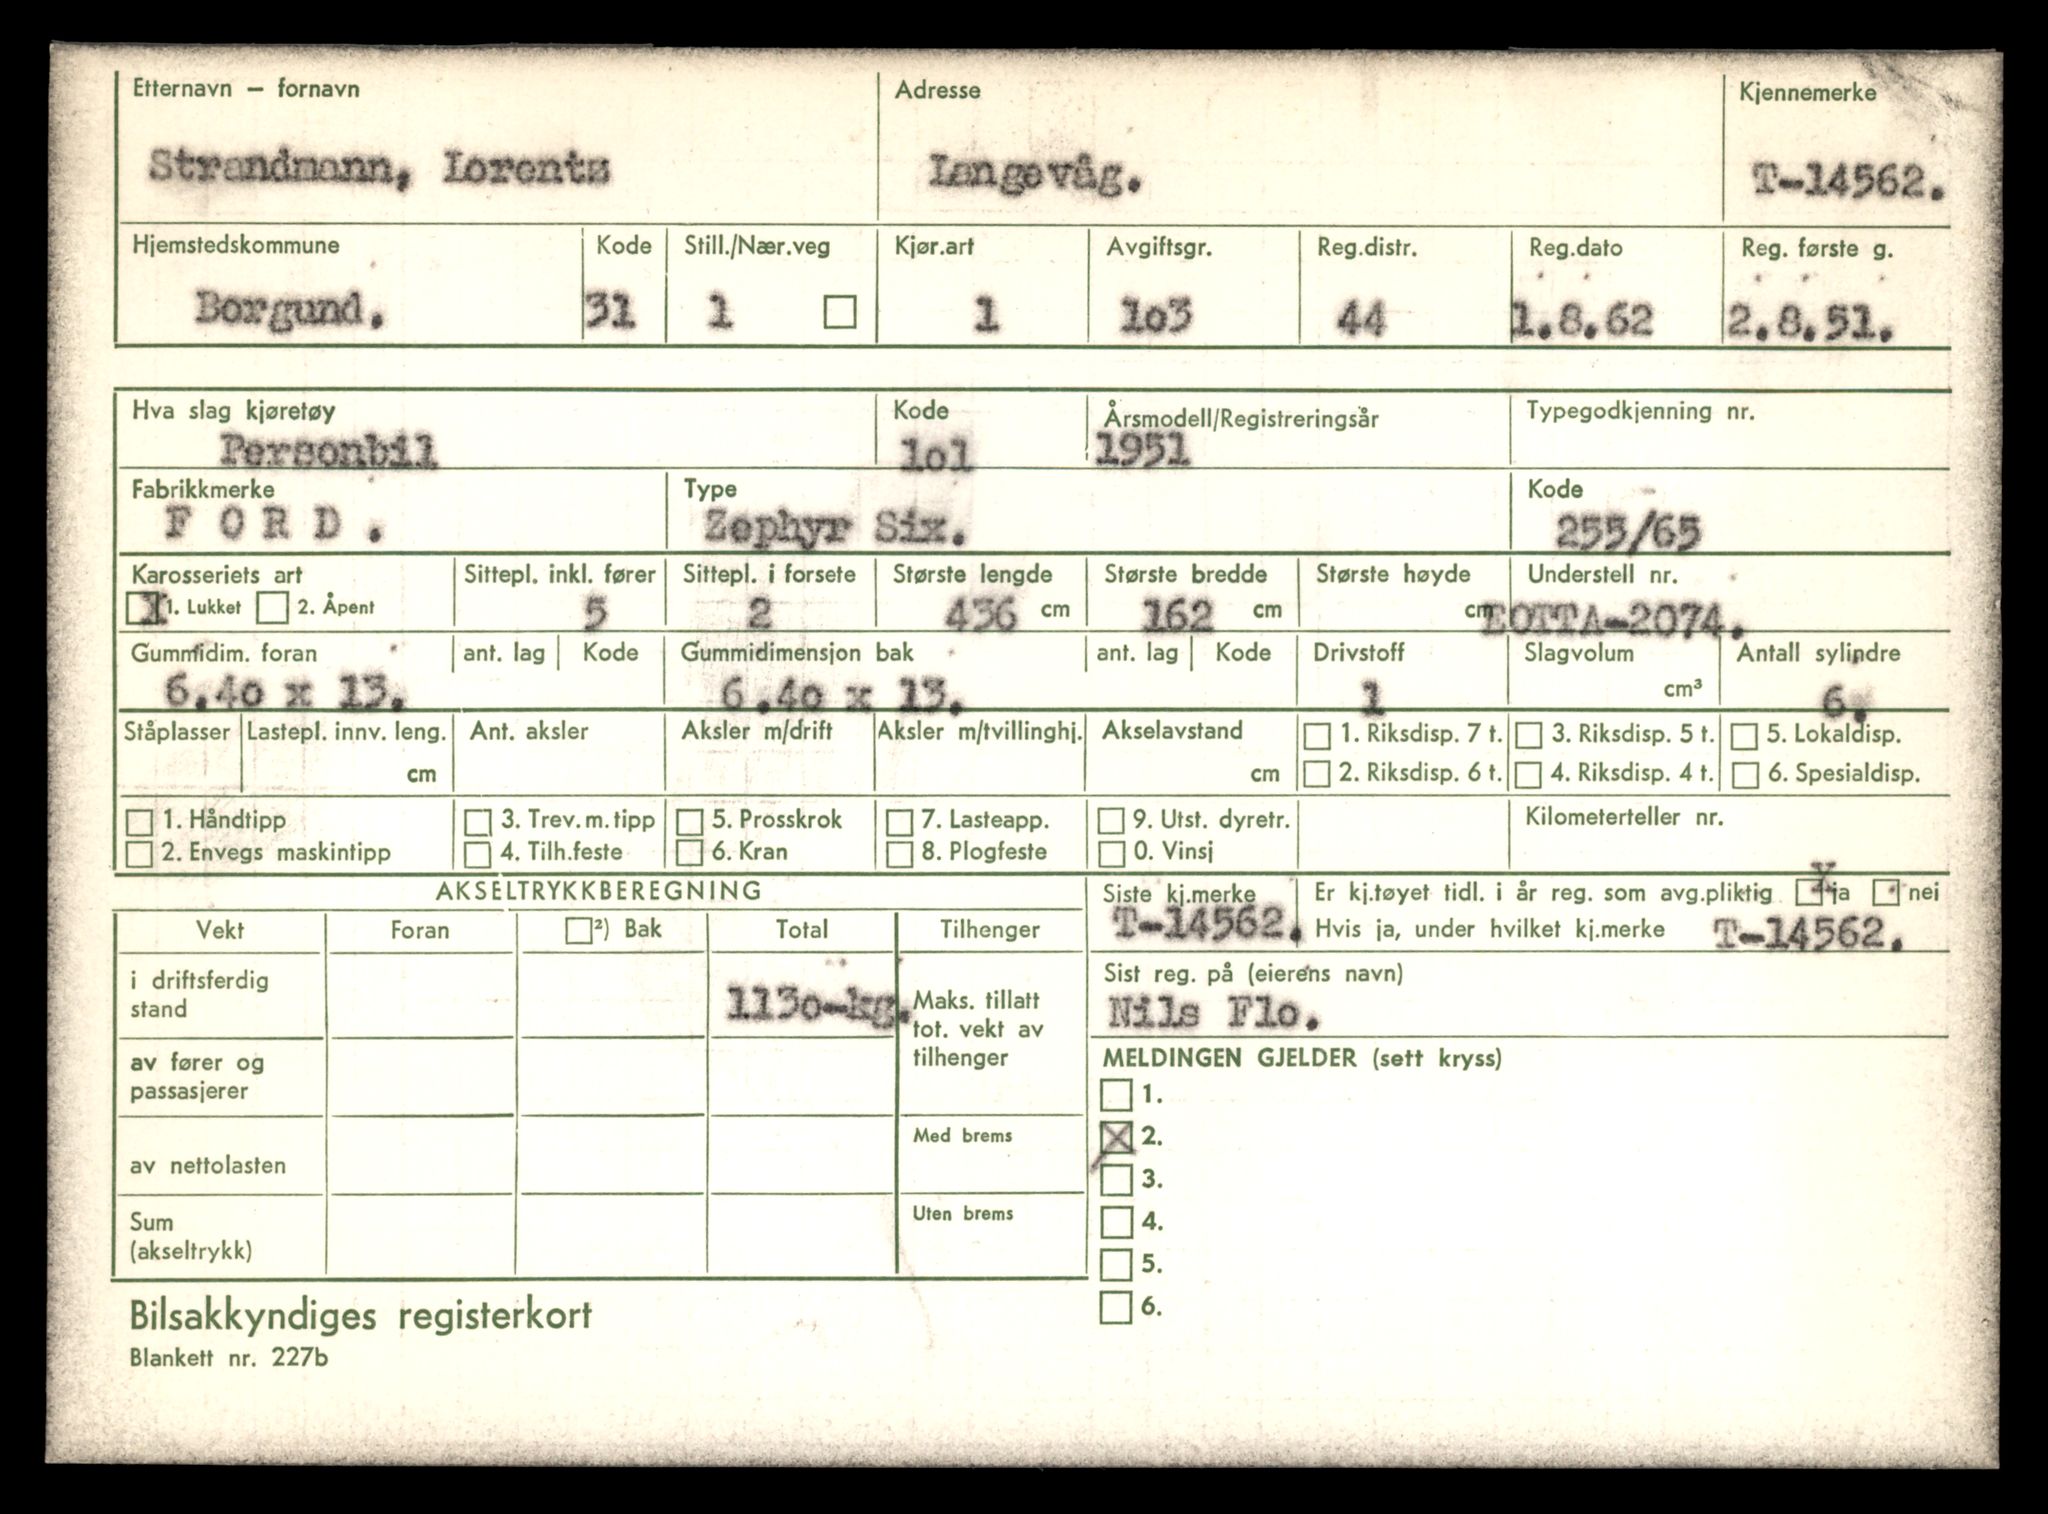 Etternavn – fornavn Adresse Kjennemerke
Strandmann, Lorents Langevåg. T-14562.
Hjemstedskommune Kode Still./Nær.veg Kjør.art Avgiftsgr. Reg.distr. Reg.dato Reg. første g.
Borgund. 31 1 1 1o3 44 1.8.62 2.8.51.
Hva slag kjøretøy Kode Årsmodell/Registreringsår Typegodkjenning nr.
Personbil 1o1 1951
Fabrikkmerke Type Kode
F O R D . Zephyr Six. 255/65
Karosseriets art Sittepl. inkl. fører Sittepl. i forsete Største lengde Største bredde Største høyde Understell nr.
X 1. Lukket 2. Åpent 5 2 436 cm 162 cm cm EOTTA-2074.
Gummidim. foran ant. lag Kode Gummidimensjon bak ant. lag Kode Drivstoff Slagvolum Antall sylindre
6.4o x 13. 6.4o x 13. 1 cm³ 6.
Ståplasser Lastepl. innv. leng. Ant. aksler Aksler m/drift Aksler m/tvillinghj. Akselavstand 1. Riksdisp. 7 t. 3. Riksdisp. 5 t. 5. Lokaldisp.
cm cm 2. Riksdisp. 6 t. 4. Riksdisp. 4 t. 6. Spesialdisp.
1. Håndtipp 3. Trev.m.tipp 5. Prosskrok 7. Lasteapp. 9. Utst. dyretr. Kilometerteller nr.
2. Envegs maskintipp 4. Tilh.feste 6. Kran 8. Plogfeste 0. Vinsj
AKSELTRYKKBEREGNING Siste kj.merke Er kj.tøyet tidl. i år reg. som avg.pliktig X ja nei
T-14562. Hvis ja, under hvilket kj.merke T-14562.
Vekt Foran ²) Bak Total Tilhenger
Sist reg. på (eierens navn)
Nils Flo.
i driftsferdig
stand 113o-kg. Maks. tillatt
tot. vekt av
tilhenger
av fører og
passasjerer
MELDINGEN GJELDER (sett kryss)
1.
X 2.
3.
4.
5.
6.
av nettolasten Med brems
Sum
(akseltrykk) Uten brems
Bilsakkyndiges registerkort
Blankett nr. 227b